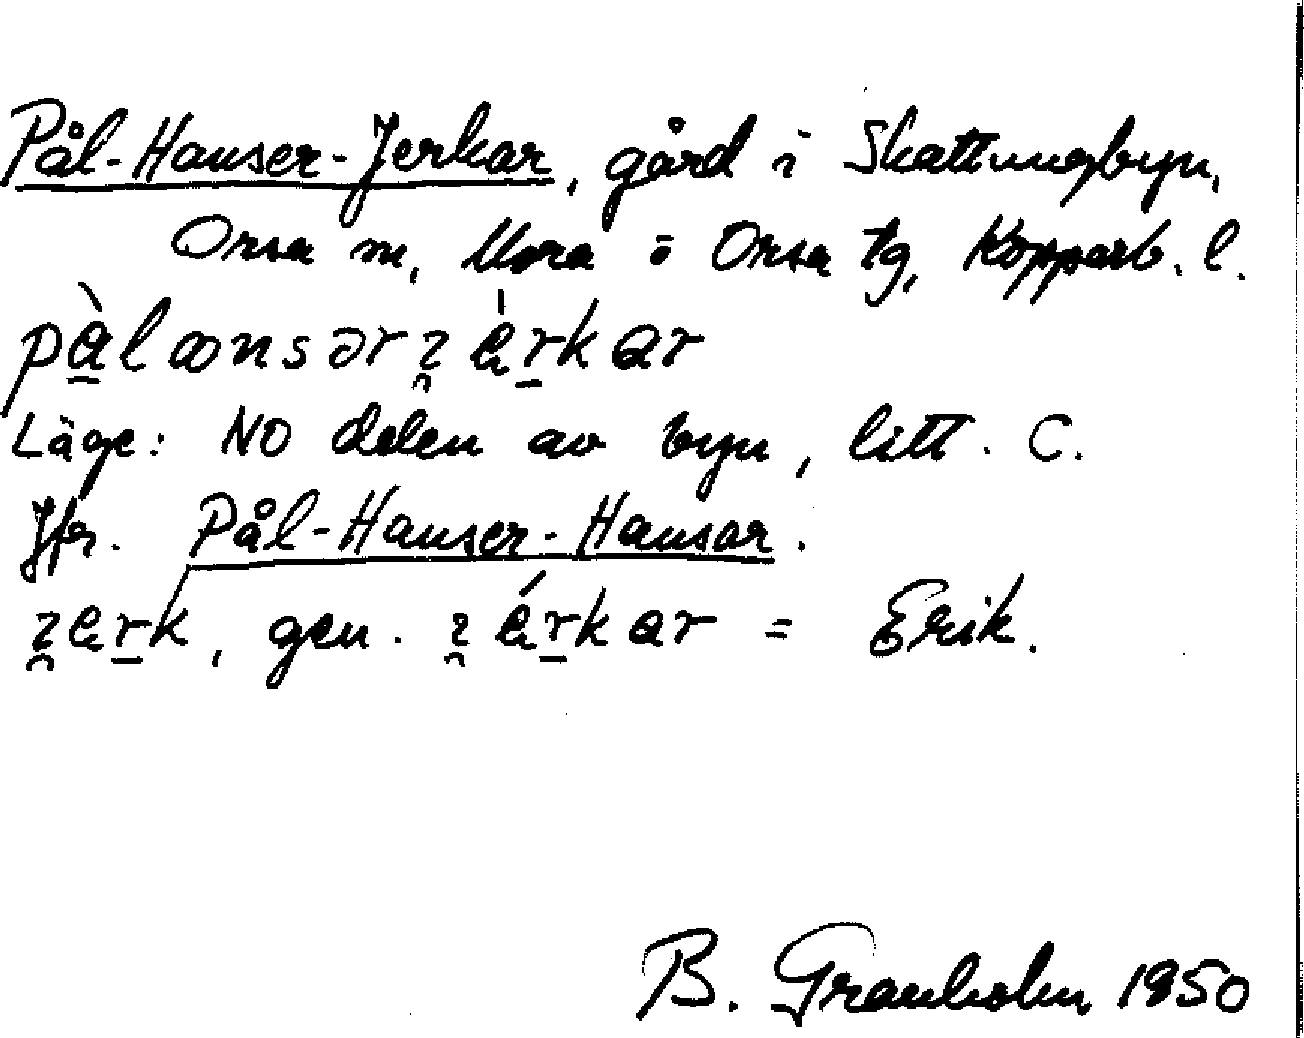 Pål-Hanser-Jerkar, gård i Skattungbyn,
Orsa sn, Mora o Orsa tg, Kopparb. l.
Läge: NO delen av byn, litt. C.
Jfr. Pål-Hanser-Hansar.
gen. = Erik.
B. Granholm 1950